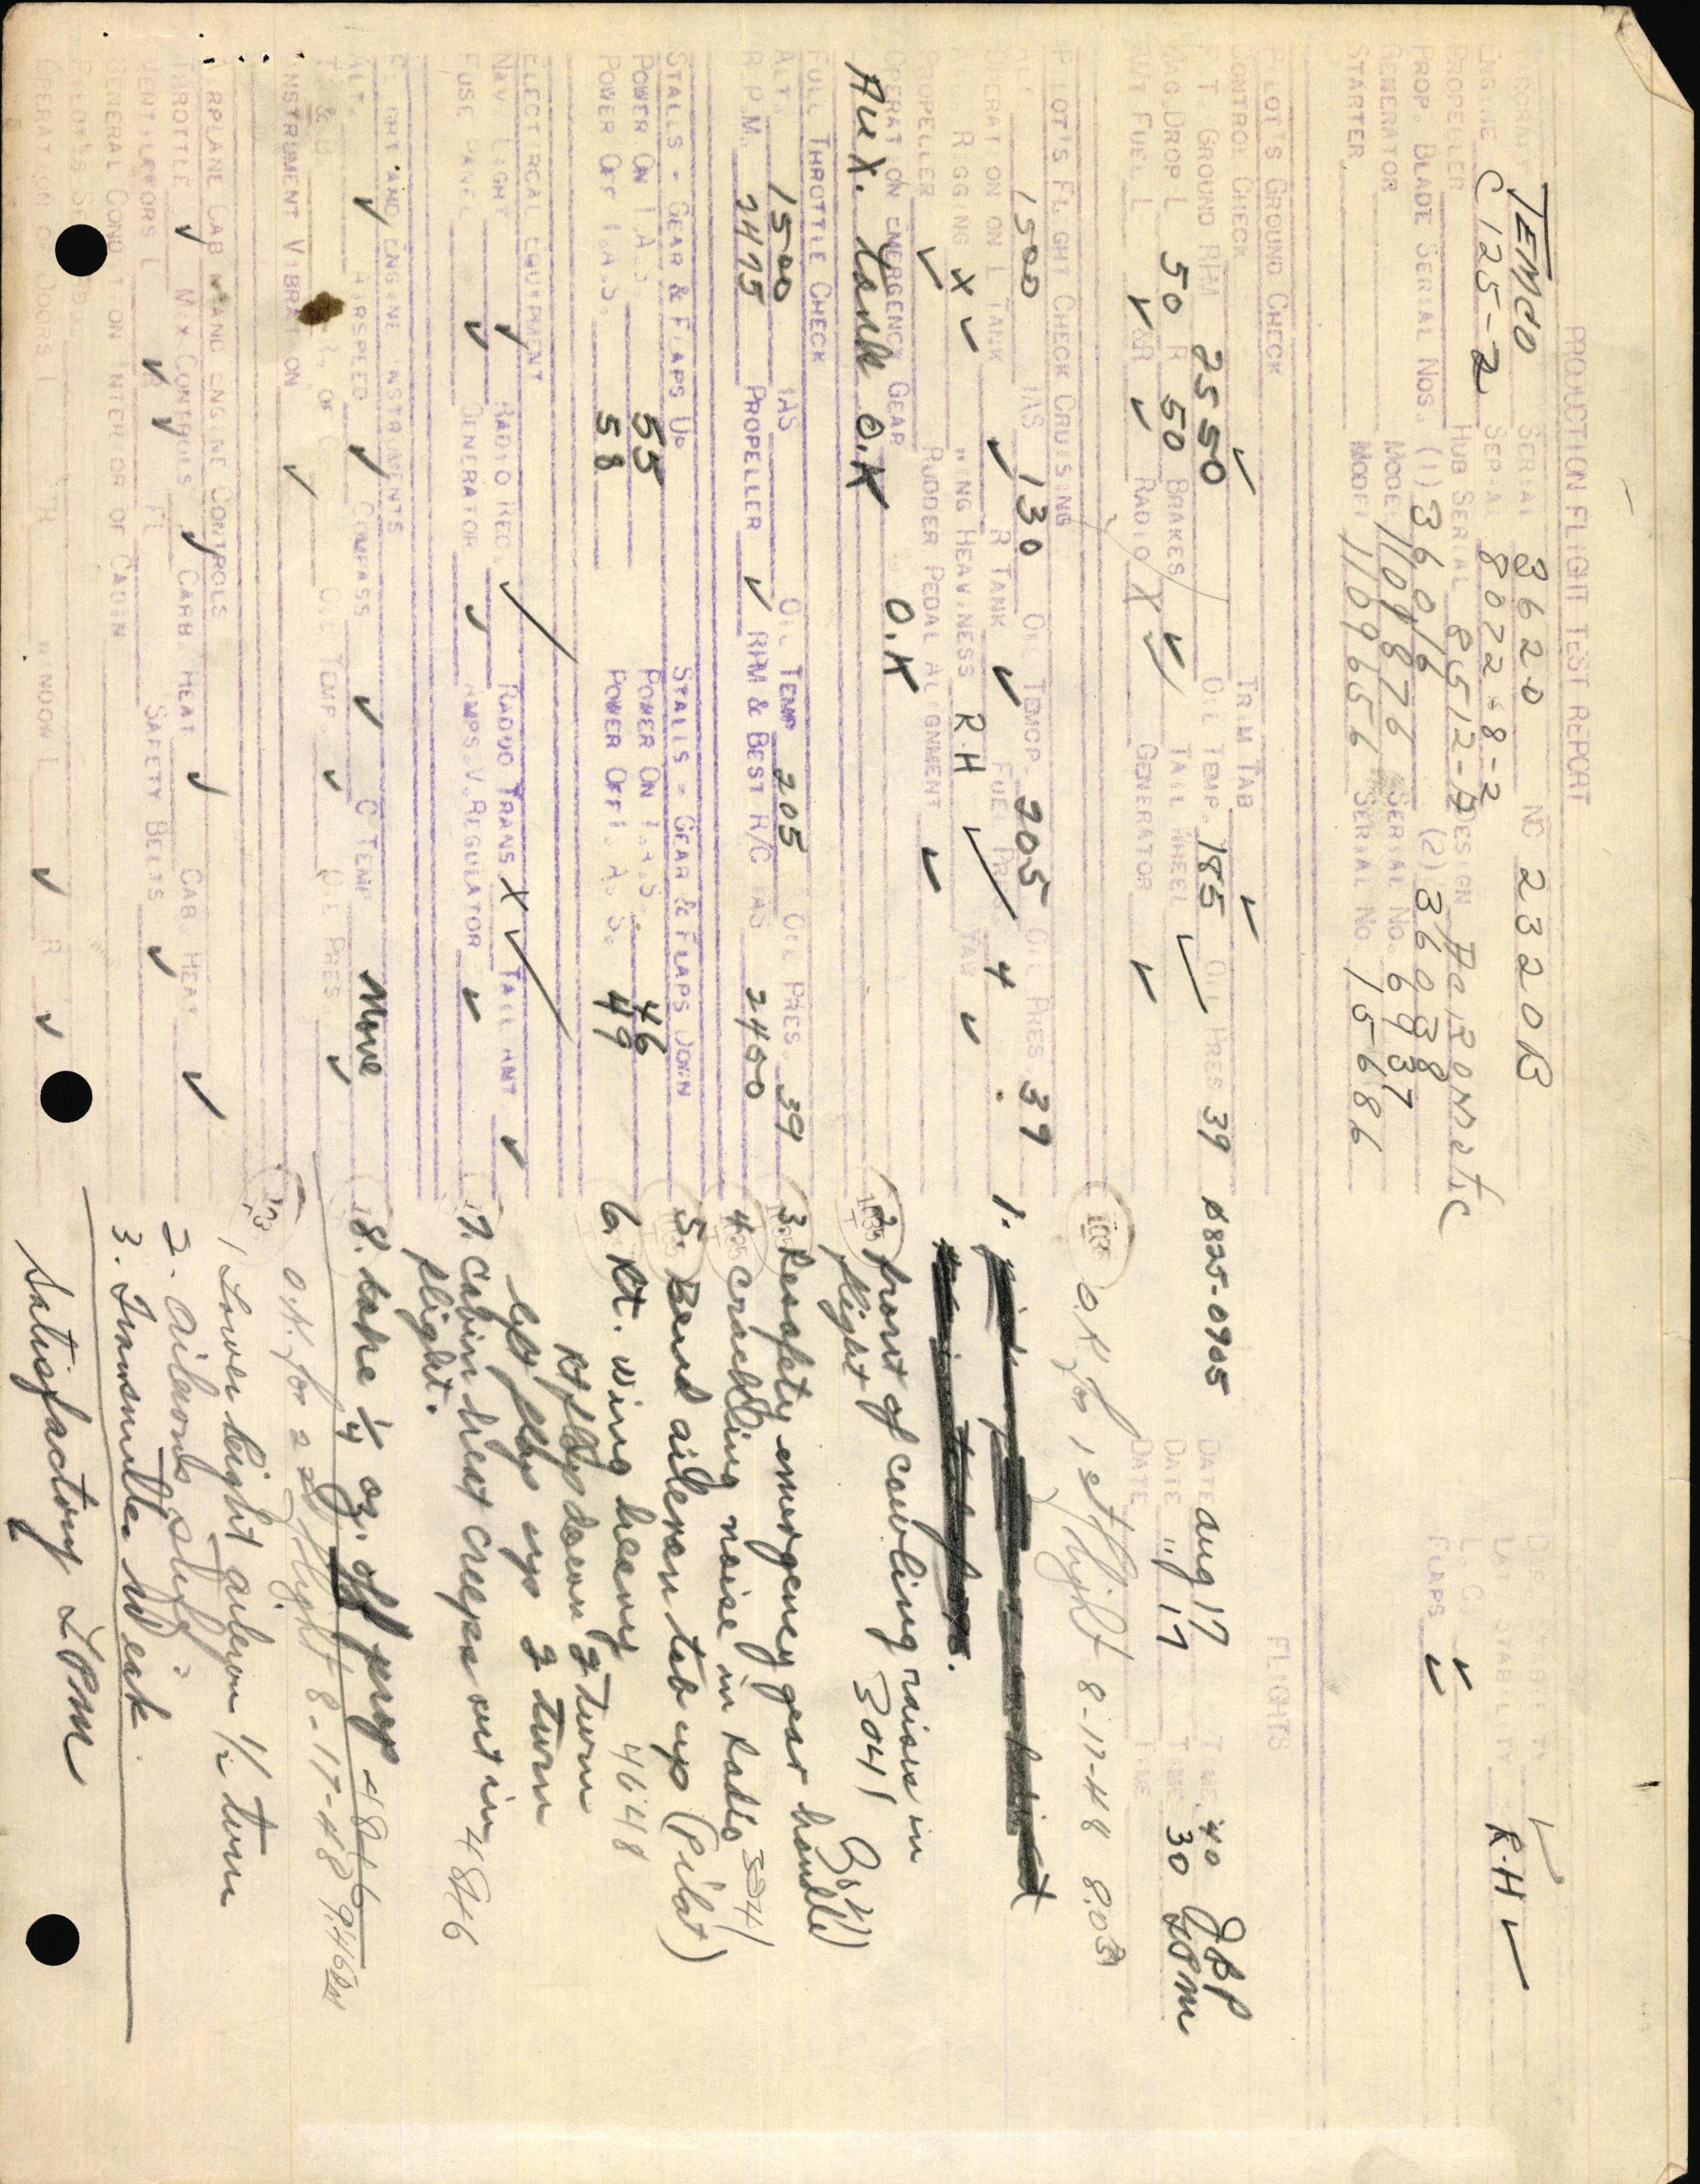 PRODUCTION FLIGHT TEST REPORT
TEMCO SERIAL 3620 NC 2320B
ENGINE C 125-2 SERIAL 8022-8-2 LAT. STABILITY R.H ✓
PROPELLER HUB SERIAL 85512-A DESIGN
PROP. BLADE SERIAL NOS. (1) 36016 (2) 36038 FLAPS ✓
GENERATOR MODEL 1101876 SERIAL NO. 6937
STARTER MODEL 1109656 SERIAL NO. 15686
PILOT'S GROUND CHECK FLIGHTS
CONTROL CHECK ✓ TRIM TAB ✓
F. T. GROUND RPM 2550 OIL TEMP. 185 OIL PRES 39 DATE Aug 17 TIME 40 JBP
MAG DROP L 50 R 50 BRAKES ✓ TAIL WHEEL ✓ DATE " 17 TIME 30 LPM
FUEL L ✓ &R ✓ RADIO X ✓ GENERATOR ✓ DATE TIME
O.K. for 1st flight 8-17-48 8:03
PILOT'S FLIGHT CHECK CRUISING
ALT 1500 IAS 130 OIL TEMP. 205 OIL PRES 39
OPERATION ON L TANK ✓ R TANK ✓ FUEL PR. 4
RIGGING X ✓ WING HEAVINESS RH ✓ YAW ✓
PROPELLER ✓ RUDDER PEDAL ALIGNMENT ✓
OPERATION EMERGENCY GEAR O.K
AUX. tank O.K
1.
2. front of cowling raises in
flight 3041
FULL THROTTLE CHECK
ALT. 1500 IAS OIL TEMP 205 OIL PRES. 39
R.P.M. 2475 PROPELLER ✓ RPM & BEST R/C IAS 2400
3. Resafety emergency gear handle
4. Crackling noise in Radio
STALLS - GEAR & FLAPS UP STALLS - GEAR & FLAPS DOWN
POWER ON I.A.S. 55 POWER ON I.A.S. 46
POWER OFF I.A.S. 58 POWER OFF I.A.S. 49
5. Bend aileron tab up (Pilot)
6. Rt. wing heavy 4648
Rt flap down 2 turn
left flap up 2 turn
ELECTIRCAL EQUIPMENT
NAV. LIGHT ✓ RADIO REC. ✓ RADIO TRANS X ✓ TAIL ANT ✓
FUSE PANEL ✓ GENERATOR ✓ AMPS. V. REGULATOR ✓
7. Cabin heat creeps out in
flight. 4846
FLIGHT AND ENGINE INSTRUMENTS
ALT. ✓ AIRSPEED ✓ COMPASS ✓ C TEMP None
OIL TEMP. ✓ OIL PRES ✓
INSTRUMENT VIBRATION ✓
8. take 1/4 oz. off prop 4846
O.K. for 2nd flight 8-17-48 9:46
AIRPLANE CABIN AND ENGINE CONTROLS
THROTTLE ✓ MIX CONTROLS ✓ CARB. HEAT ✓ CAB. HEAT ✓
VENTILATORS L ✓ R ✓ SAFETY BELTS ✓
GENERAL CONDITION INTERIOR OF CABIN
1 Lower right aileron 1/2 turn
2. Ailerons stiff.
3. Transmitter Weak.
OPERATION OF DOORS L R WINDOW L ✓ R ✓
Satisfactory LPM